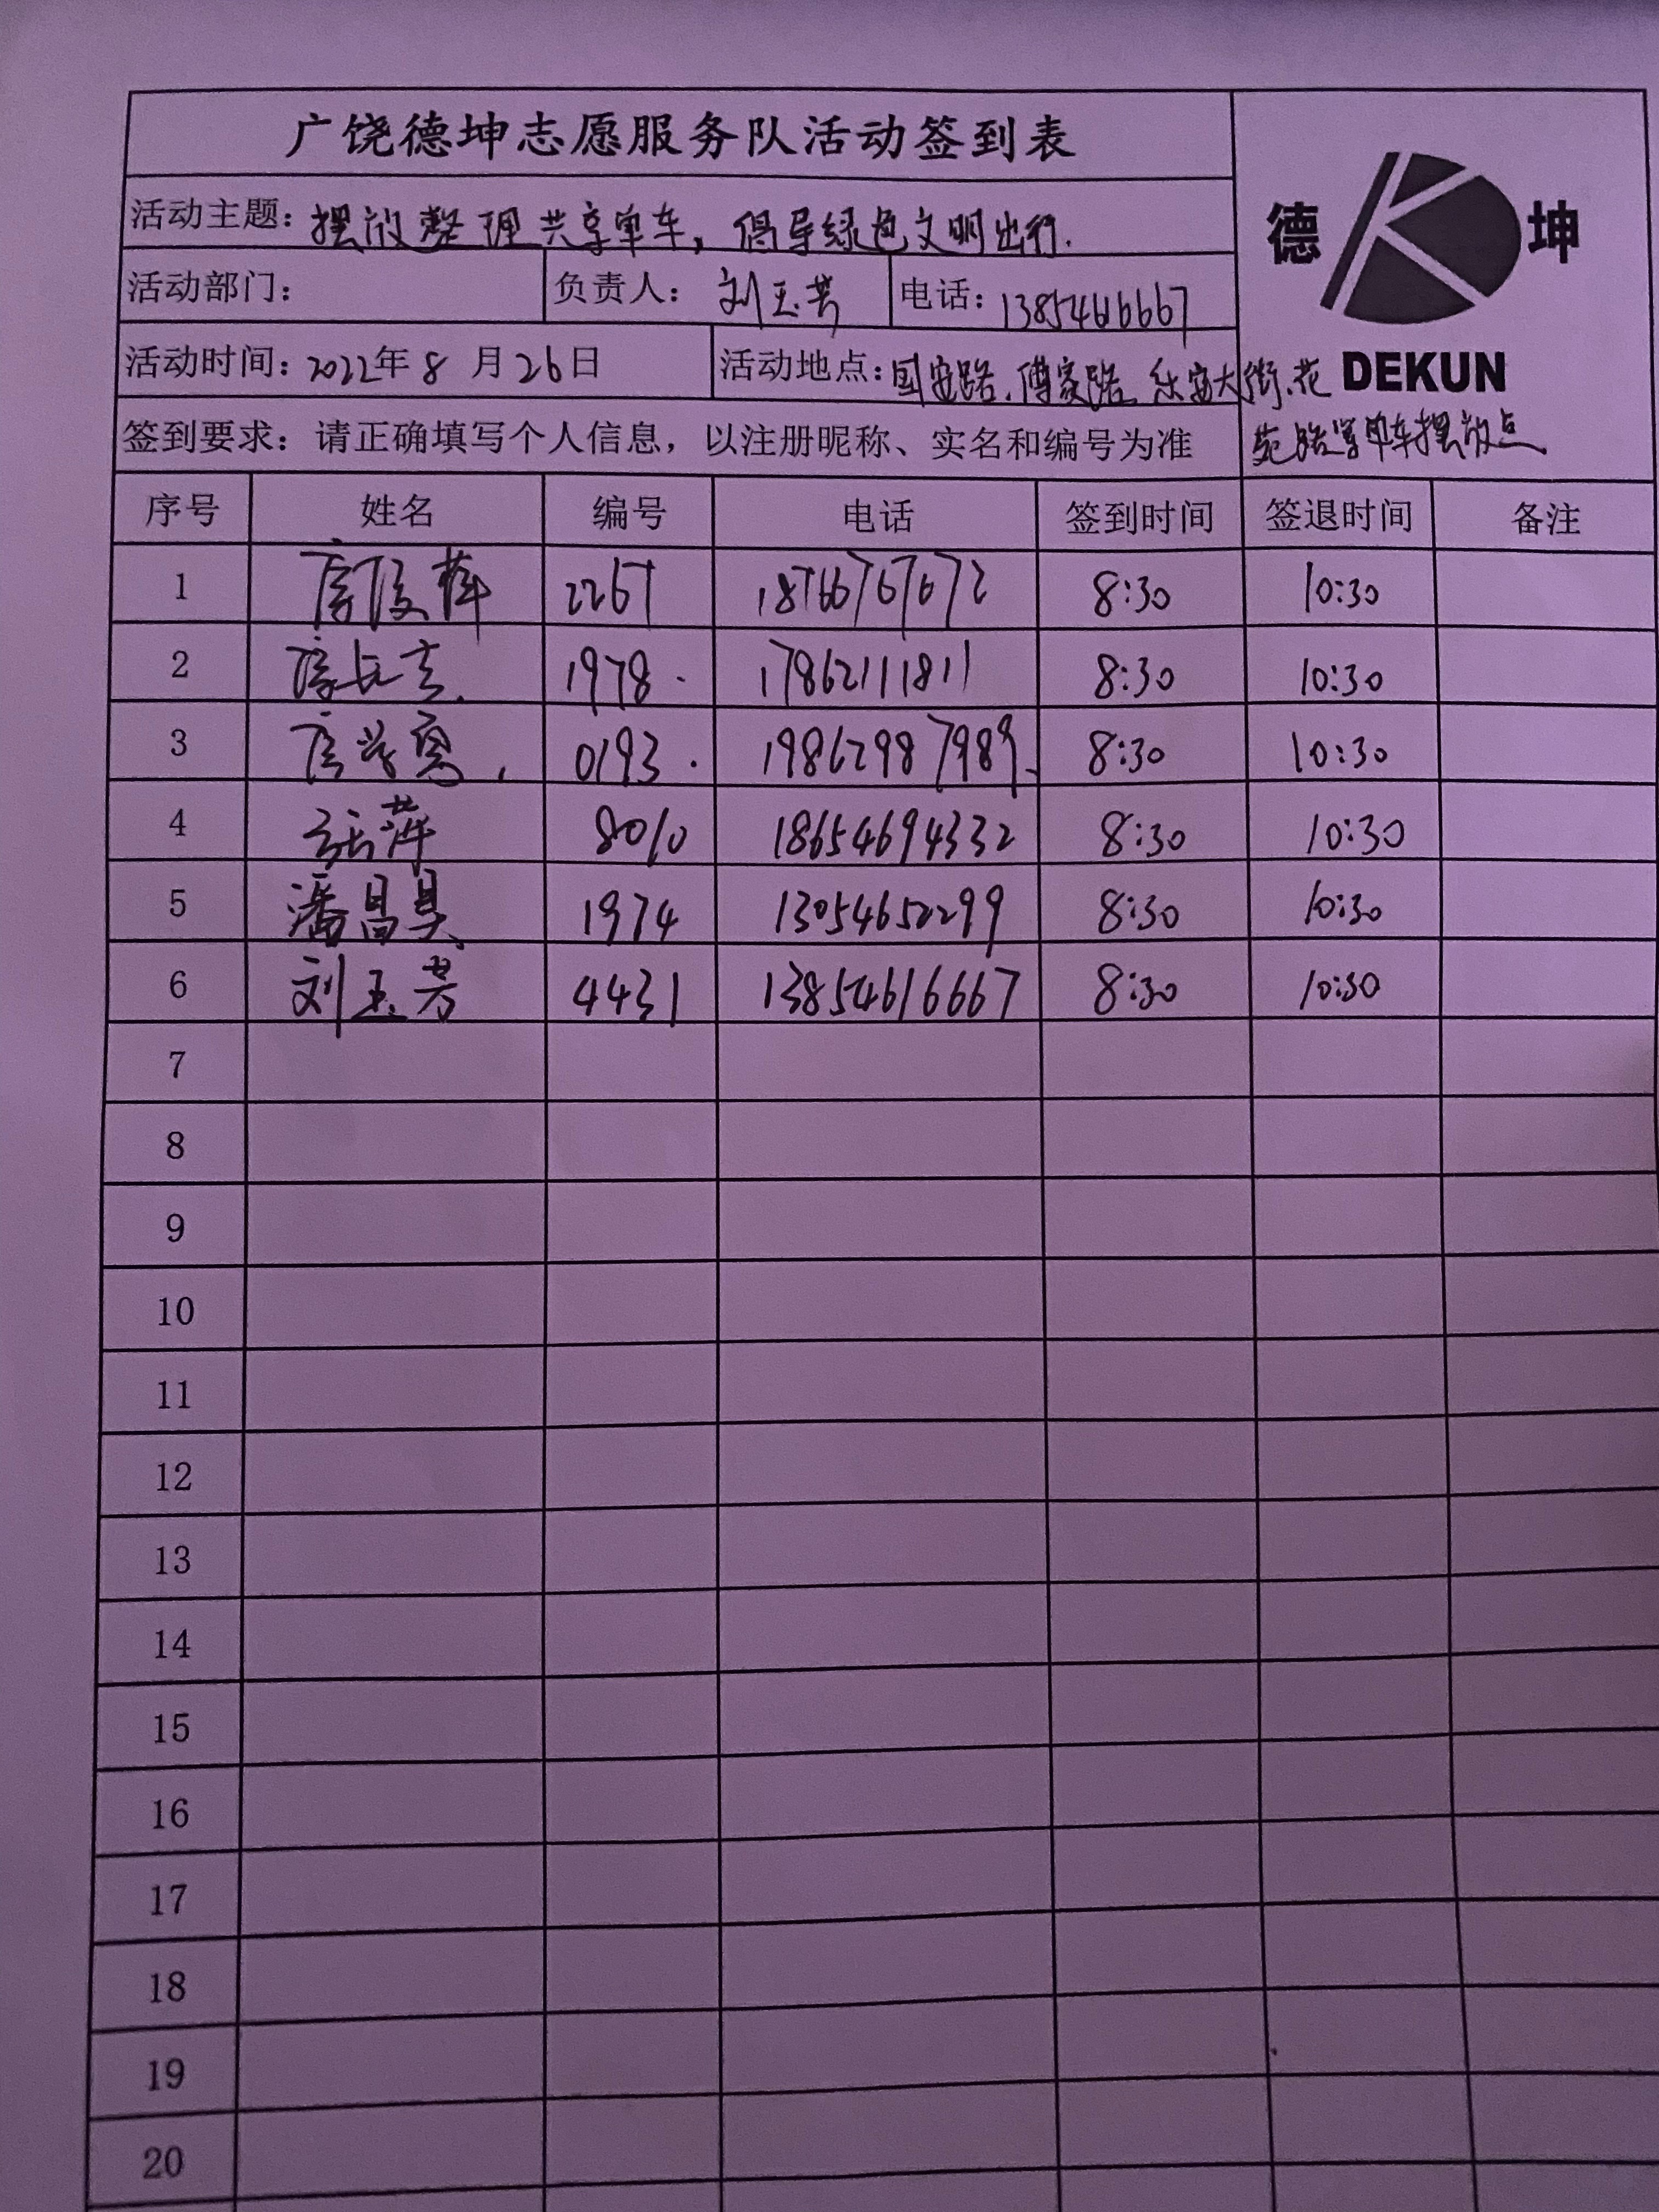 广饶德坤志愿服务队活动签到表
德 坤
DEKUN
活动主题：摆放整理共享单车，倡导绿色文明出行.
活动部门： 负责人：刘玉芳 电话：13854616667
活动时间：2022年8月26日 活动地点：国安路、傅家路、乐安大街、花
苑路等单车摆放点
签到要求：请正确填写个人信息，以注册昵称、实名和编号为准
序号 姓名 编号 电话 签到时间 签退时间 备注
1 2267 18766767672 8:30 10:30
2 1978 17862111811 8:30 10:30
3 0193 19862987989 8:30 10:30
4 张萍 8010 18654694332 8:30 10:30
5 潘昌昊 1974 13054652299 8:30 10:30
6 刘玉芳 4431 13854616667 8:30 10:30
7
8
9
10
11
12
13
14
15
16
17
18
19
20